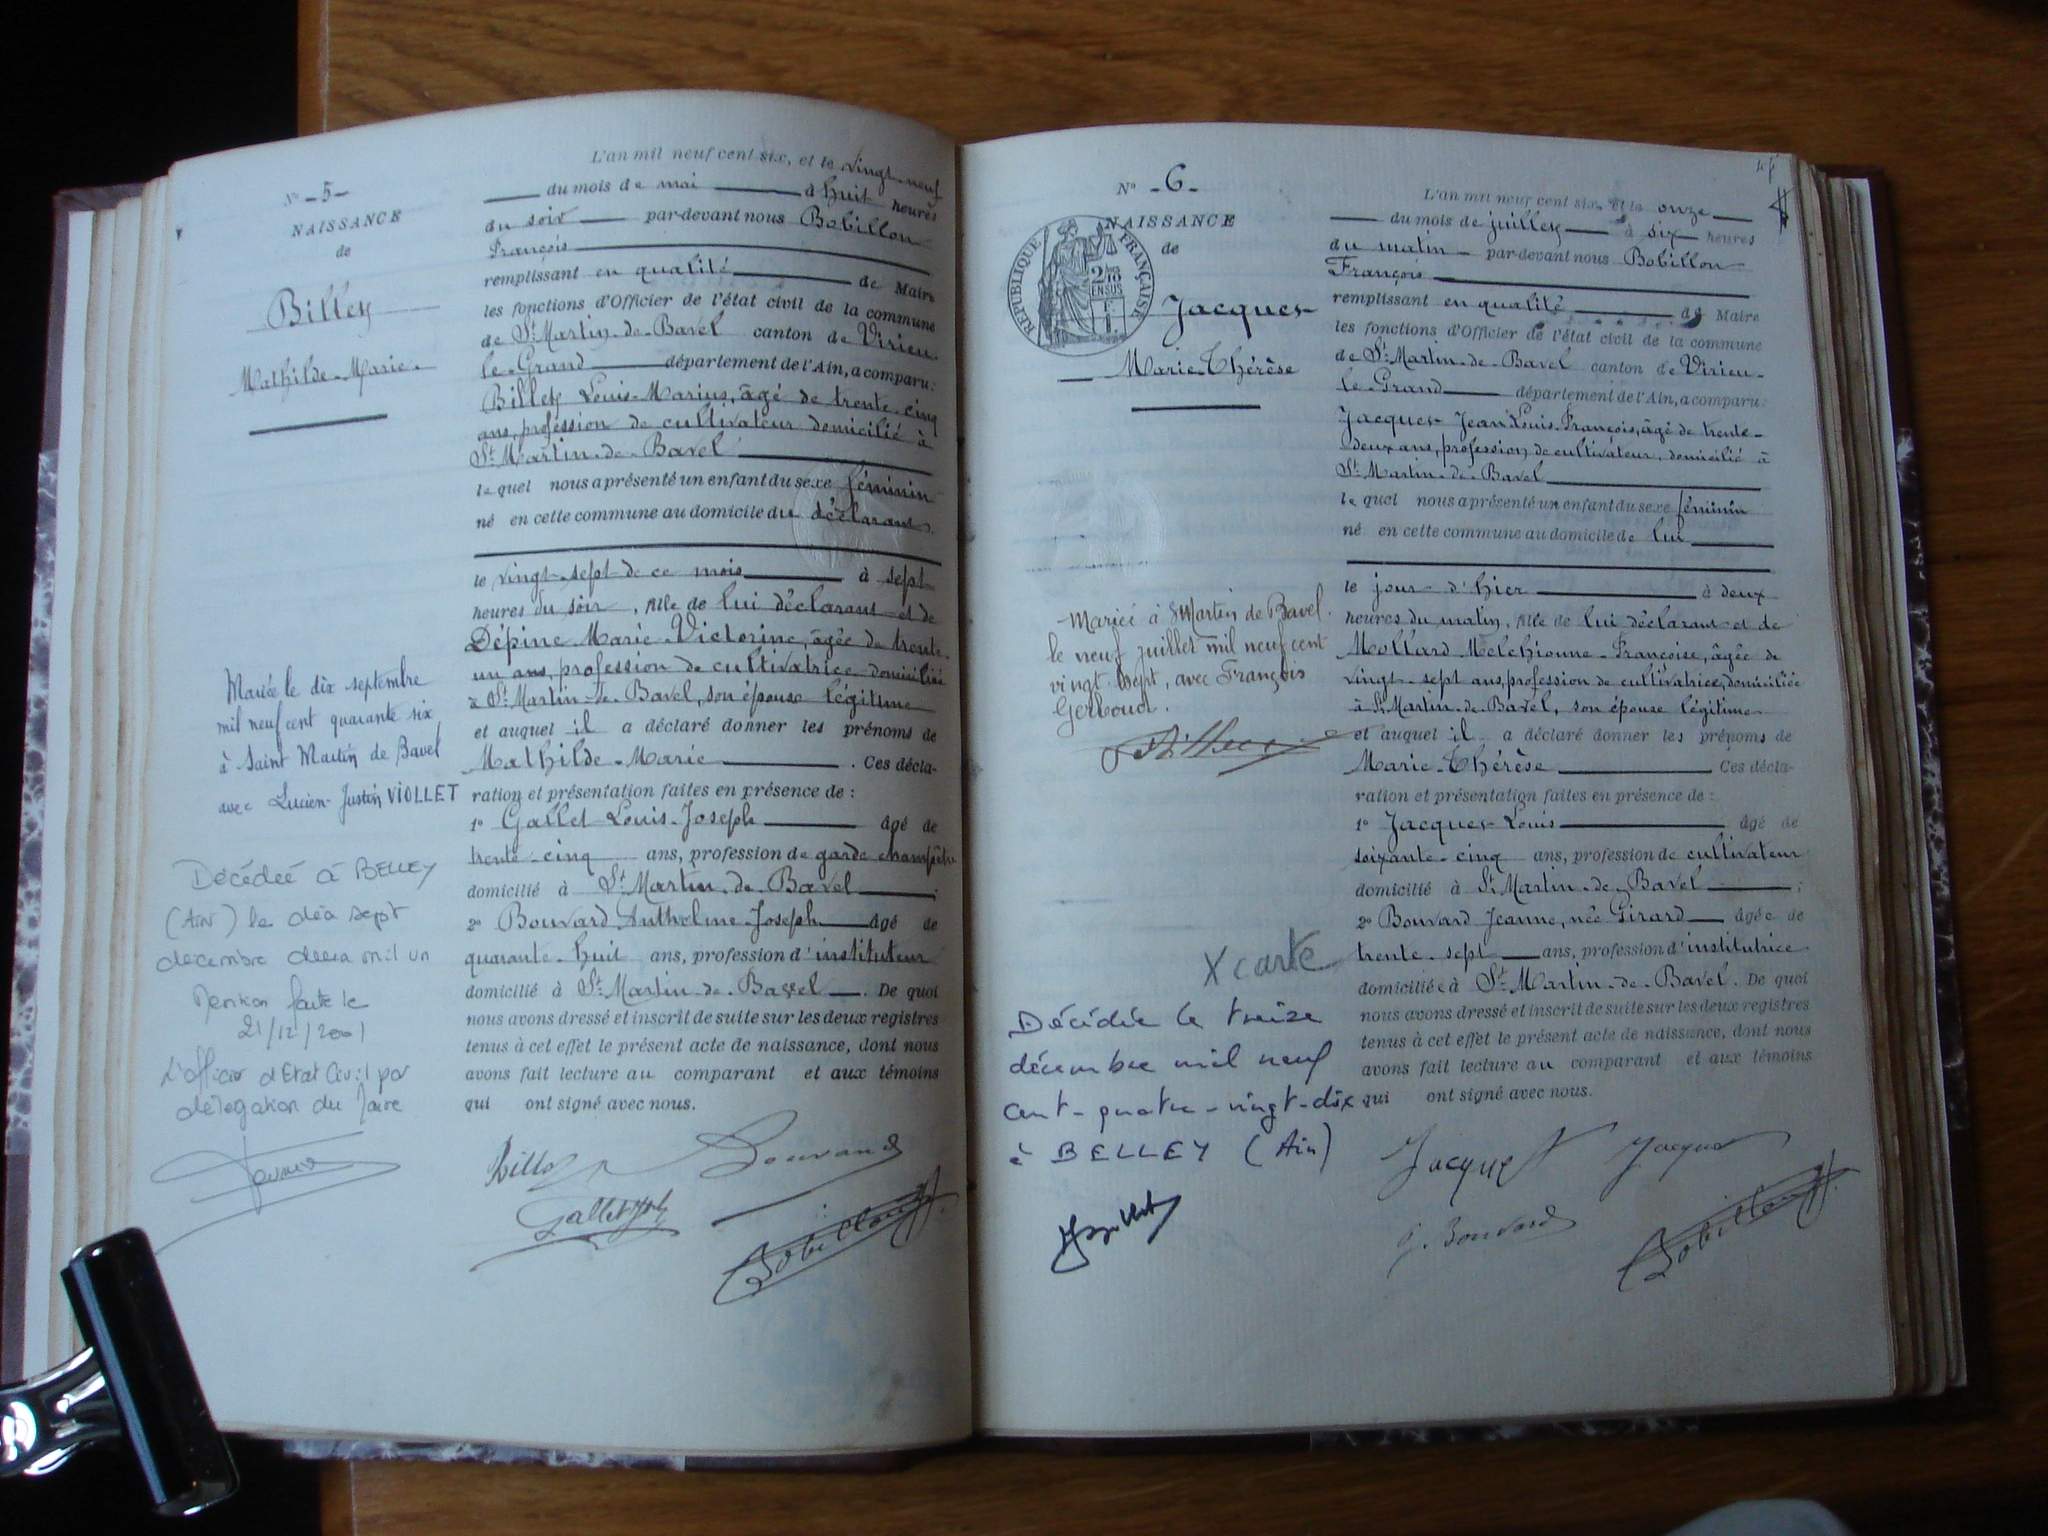 N° -5-
NAISSANCE
de
Billey
Mathilde-Marie
Mariée le dix septembre
mil neuf cent quarante six
à Saint Martin de Bavel
avec Lucien-Justin VIOLLET
Décédée à BELLEY
(AIN) le dix sept
décembre deux mil un
Mention faite le
21/12/2001
L'officier d'Etat Civil par
délégation du Maire
L'an mil neuf cent six, et le vingt-neuf
du mois de mai à huit heures
du soir par-devant nous Bobillon
François
remplissant en qualité de Maire
les fonctions d'Officier de l'état civil de la commune
de St Martin-de-Bavel canton de Virieu-
le-Grand département de l'Ain, a comparu:
Billey Louis-Marius, âgé de trente-cinq
ans, profession de cultivateur domicilié à
St Martin-de-Bavel
lequel nous a présenté un enfant du sexe féminin
né en cette commune au domicile du déclarant
le vingt-sept de ce mois à sept
heures du soir, fille de lui déclarant et de
Dépine Marie-Victorine, âgée de trente-
un ans, profession de cultivatrice domiciliée
à St Martin-de-Bavel, son épouse légitime
et auquel il a déclaré donner les prénoms de
Mathilde-Marie. Ces décla-
ration et présentation faites en présence de :
1° Gallet Louis-Joseph âgé de
trente-cinq ans, profession de garde champêtre
domicilié à St Martin-de-Bavel ;
2° Bouvard Anthelme-Joseph âgé de
quarante-huit ans, profession d'instituteur
domicilié à St Martin-de-Bavel. De quoi
nous avons dressé et inscrit de suite sur les deux registres
tenus à cet effet le présent acte de naissance, dont nous
avons fait lecture au comparant et aux témoins
qui ont signé avec nous.
Billey Bouvard
Gallet
Bobillon
N° -6-
NAISSANCE
de
RÉPUBLIQUE FRANÇAISE
2/10 EN SUS
Jacquet
Marie-Thérèse
Mariée à St Martin de Bavel
le neuf juillet mil neuf cent
vingt-sept, avec François
Gerboud.
X carte
Décédée le treize
décembre mil neuf
cent-quatre-vingt-dix
à BELLEY (Ain)
L'an mil neuf cent six, et le onze
du mois de juillet à six heures
du matin par-devant nous Bobillon
François
remplissant en qualité de Maire
les fonctions d'Officier de l'état civil de la commune
de St Martin-de-Bavel canton de Virieu-
le-Grand département de l'Ain, a comparu:
Jacquet Jean-Louis-François, âgé de trente-
deux ans, profession de cultivateur, domicilié à
St Martin-de-Bavel
lequel nous a présenté un enfant du sexe féminin
né en cette commune au domicile de lui
le jour d'hier à deux
heures du matin, fille de lui déclarant et de
Mollard Melchionne-Françoise, âgée de
vingt-sept ans, profession de cultivatrice, domiciliée
à St Martin-de-Bavel, son épouse légitime
et auquel il a déclaré donner les prénoms de
Marie-Thérèse Ces décla-
ration et présentation faites en présence de :
1° Jacquet Louis âgé de
soixante-cinq ans, profession de cultivateur
domicilié à St Martin-de-Bavel ;
2° Bouvard Jeanne, née Girard âgée de
trente-sept ans, profession d'institutrice
domiciliée à St Martin-de-Bavel. De quoi
nous avons dressé et inscrit de suite sur les deux registres
tenus à cet effet le présent acte de naissance, dont nous
avons fait lecture au comparant et aux témoins
qui ont signé avec nous.
Jacquet Jacquet
J. Bouvard Bobillon